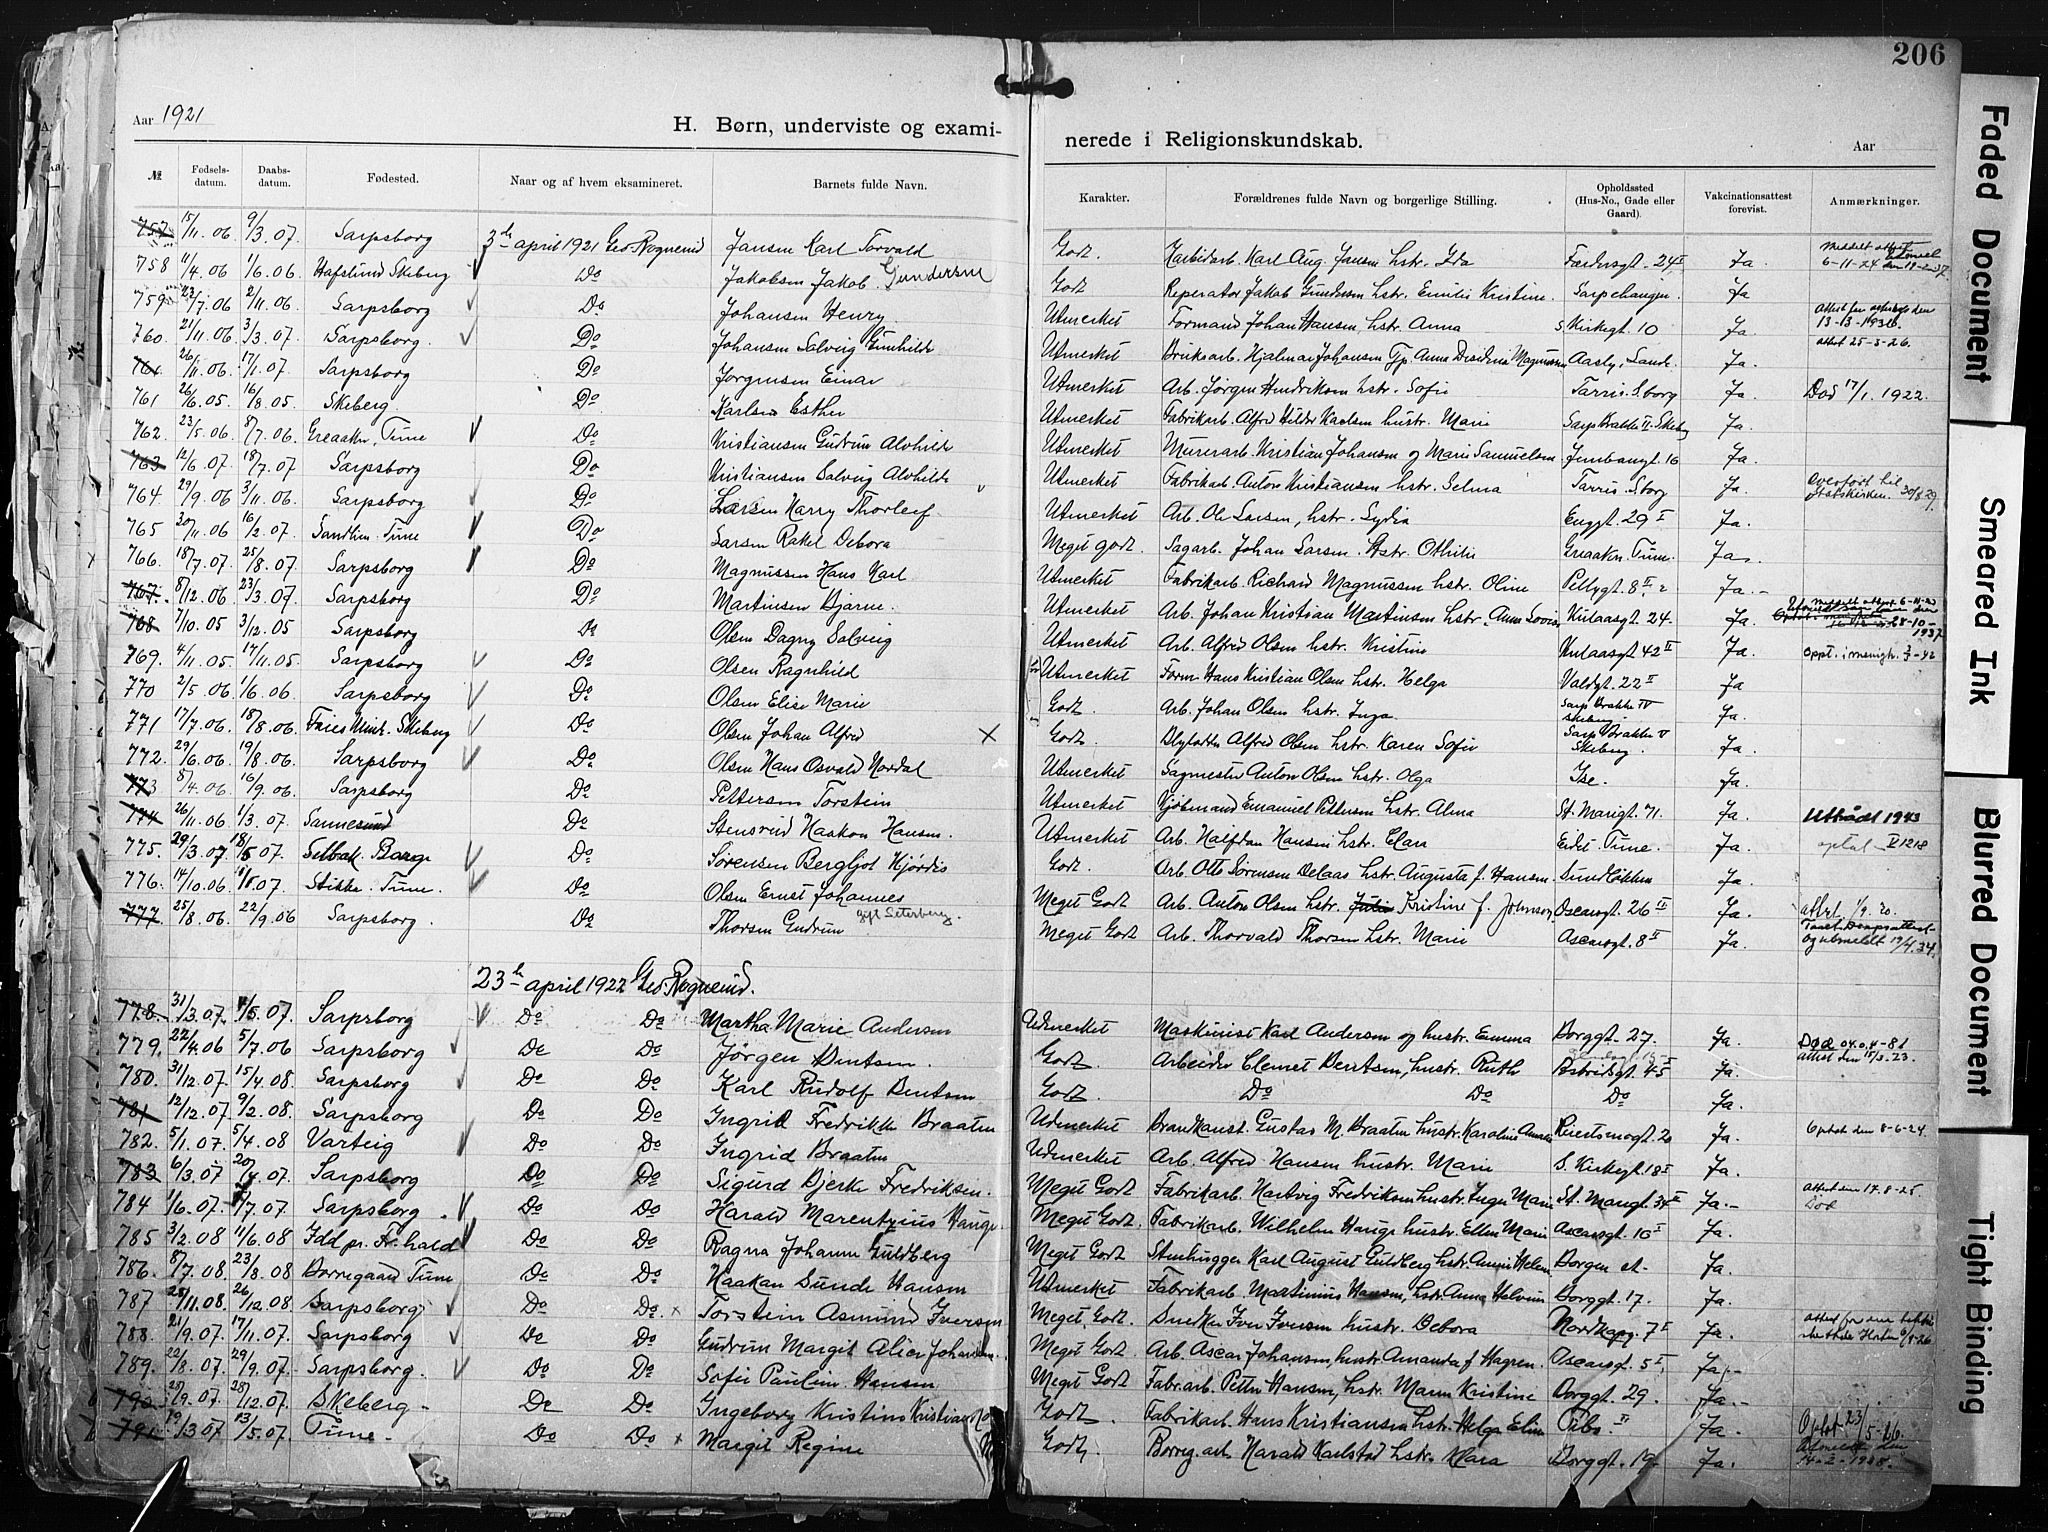 206
Aar 1921
H. Børn, underviste og exami-
nerede i Religionskundskab.
Aar
№ Fødsels-datum. Daabs-datum. Fødested. Naar og af hvem eksamineret. Barnets fulde Navn.
Karakter. Forældrenes fulde Navn og borgerlige Stilling. Opholdssted (Hus-No., Gade eller Gaard). Vakcinationsattest forevist. Anmærkninger.
757 15/11.06 9/3.07. Sarpsborg 3die april 1921 Geo. Rognerud Jansen Karl Torvald Godt. Karl Aug. Jansen hstr. Ida Færdersgt. 24 II Ja. Meddelt attest 6-11-24
758 11/4.06 1/6.06. Hafslund Skeberg Do Jakobsen Jakob Gundersen Godt Reperatør Jakob Gundersen hstr. Emilie Kristine. Ja
759 7.06 2/11.06. Sarpsborg Do Johansen Henry Utmerket Formand Johan Hansen hstr. Anna S Kirkegt. 10 Ja.
760. 21/11.06. 3/3.07. Sarpsborg. Do Johansen Solveig Gunhilde Utmerket Bruksarb. Hjalmar Johansen Anna Magnussen Ja. attest 25-3-26.
761 26/11.06. 17/1.07. Sarpsborg Do Jørgensen Einar Utmerket Arb. Jørgen Hendriksen hstr. Sofie Tarris. S.borg Ja. Død 17/1. 1922.
761 26/6.05. 16/8.05. Skeberg. Do Karlsen Esther Utmerket Fabrikarb. Alfred Karlsen hustr. Marie Ja.
762. 23/5.06. 8/7.06. Greaaker, Tune Do Kristiansen Gudrun Alvhilde Utmerket Murerarb. Kristian Johansen og Marie Samuelsen Jernbanegt. 16 Ja.
763 12/6.07. 18/7.07. Sarpsborg Do Kristiansen Solveig Alvhilde Utmerket Fabrikarb. Anton Kristiansen hstr. Selma Tarris. S.borg Ja. Overført til Statskirken. 30/8.29.
764 29/9.06 3/11.06. Sarpsborg Do Larsen Harry Thorleif Utmerket Arb. Ole Larsen, hstr. Lydia Enggt. 29 I Ja.
765 30/11.06 16/2.07. Tune Do Larsen Rakel Debora Meget godt. Sagarb. Johan Larsen. Hstr. Othilie Greaaker Tune. Ja.
766. 18/7.07. 25/8.07. Sarpsborg Do Magnussen Hans Karl Utmerket Fabrikarb. Richard Magnussen hstr. Oline Pellygt. 8 II Ja.
767. 8/12.06 23/3.07. Sarpsborg Do Martinsen Bjarne. Utmerket Arb. Johan Kristian Martinsen hstr. Anna Lovise Kulaasgt. 24. Ja. 28-10-1937
768 7/10.05 3/12.05 Sarpsborg Do Olsen Dagny Solveig Utmerket Arb. Alfred Olsen hstr. Kristine Kulaasgt 42 II Ja. oppt. i menigh. 3/3-42
769. 4/11.05. 17/11.05. Sarpsborg Do Olsen Ragnhild Utmerket Form. Hans Kristian Olsen hstr. Helga Valdgt. 22 II Ja
770 2/5.06. 1/6.06. Sarpsborg Do Olsen Elise Marie Godt. Arb. Johan Olsen hstr. Inga. Sarp Brakke IV Skeberg. Ja.
771 17/7.06. 18/8.06. Skeberg Do Olsen Johan Alfred Godt. Alfred Olsen hstr. Karen Sofie Sarp Brakke V Skeberg. Ja.
772. 29/6.06. 19/8.06. Sarpsborg Do Olsen Hans Osvald Nordal Utmerket Sagmester Anton Olsen hstr. Olga Ise. Ja.
773 8/4.06. 16/9.06. Sarpsborg Do Pettersen Torstein Utmerket Kjøbmand Emanuel Pettersen hstr. Alma St. Mariegt. 71. Ja. Uttrådt 1943
774 26/11.06 1/3.07. Sannesund Do Stensrud Haakon Hansen. Utmerket Arb. Halfdan Hansen hstr. Clara Eidet. Tune. Ja.
775. 29/3.07 18/5.07. Selbak. Borge Do Sørensen Bergljot Hjørdis Godt. Arb. Otto Sørensen hstr. Augusta f. Hansen Sundløkken Ja.
776. 14/10.06 07. Stikka. Tune. Do Olsen Ernst Johannes Meget Godt Arb. Anton Olsen hstr. Kristine f. Johnson Oscarsgt. 26 II Ja.
777. 25/8.06. 22/9.06 Sarpsborg. Do Thorsen Gudrun gift Seterberg. Meget Godt Arb. Thorvald Thorsen hstr. Marie Oscarsgt. 8 II Ja.
23de april 1922 Geo. Rognerud.
778. 31/3.07. 5.07. Sarpsborg Do Do Martha Marie Andersen Udmerket Maskinist Karl Andersen og hustr. Emma Borggt. 27. Ja.
779. 22/4.06 5/7.06 Sarpsborg Do Do Jørgen Bentsen. Godt. Arbeider Clemet Bentsen, hustr. Ruth Astridsgt. 45 Ja. Død 04.04-81 attest den 15/3-23.
780. 31/12.07 15/4.08. Sarpsborg Do Do Karl Rudolf Bentsen Godt. Do Do Do Ja.
781 12/12.07. 9/2.08. Sarpsborg Do Do Ingrid Fredrikke Braaten Udmerket Gustav M. Braaten hustr. Karoline Amalie 20 Ja. Optat den 8-6-24.
782. 5/1.07. 5/4.08 Varteig Do Do Ingrid Braaten Udmerket Arb. Alfred Hansen hustr. Marie S. Kirkegt. 18 I Ja.
783 6/3.07 20/4.07. Sarpsborg Do Do Sigurd Bjerke Fredriksen. Meget Godt Fabrikarb. Hartvig Fredriksen hustr. Inger Marie St. Mariegt. 34 II Ja. attest den 17.8-25.
784 1/6.07. 7.07. Sarpsborg. Do Do Harald Marentzius Hauge Meget Godt. Fabrikarb. Wilhelm Hauge hustr. Ellen Marie Oscarsgt. 10 I Ja. Død
785 3/2.08 11/6.08 Idd pr. Fr.hald Do Do Ragna Johanne Guldberg Meget Godt Stenhugger Karl August Guldberg hstr. Anne Helene Borgen Ja.
786. 8/7.08. 23/8.08 Borregaard Tune Do Do Haakon Sunde Hansen Utmerket Fabrikarb. Martinius Hansen, hstr. Anna Helvine Borggt. 17. Ja.
787 25/11.08. 26/12.08. Sarpsborg Do Do. x Torstein Asmund Iversen Meget Godt. Snedker Iver Iversen hustr. Debora 7 I Ja.
788. 21/9.07. 17/11.07. Sarpsborg Do Do Gudrun Margit Alice Johansen. Meget Godt Arb. Oscar Johansen, hustr. Amanda f. Hagren. Oscarsgt. 5 I, Ja.
789. 22/8.07. 29/9.07. Sarpsborg. Do Do Sofie Pauline Hansen Meget Godt Fabr.arb. Petter Hansen, hstr. Maren Kristine Borggt. 29. Ja.
790 9.07. 28/12.07. Skeberg Do Do Ingeborg Kristine Godt. Fabrikarb. Hans Kristiansen hstr. Helga Eline Ja. Optat 23/5-26.
791 19/3.07 13/5.07. Tune. Do Do x Margit Regine Godt. Borreg.arb. Harald Karlstad hstr. Klara Borggt. 19. Ja. 14-2-1938.
Faded Document
Smeared Ink
Blurred Document
Tight Binding